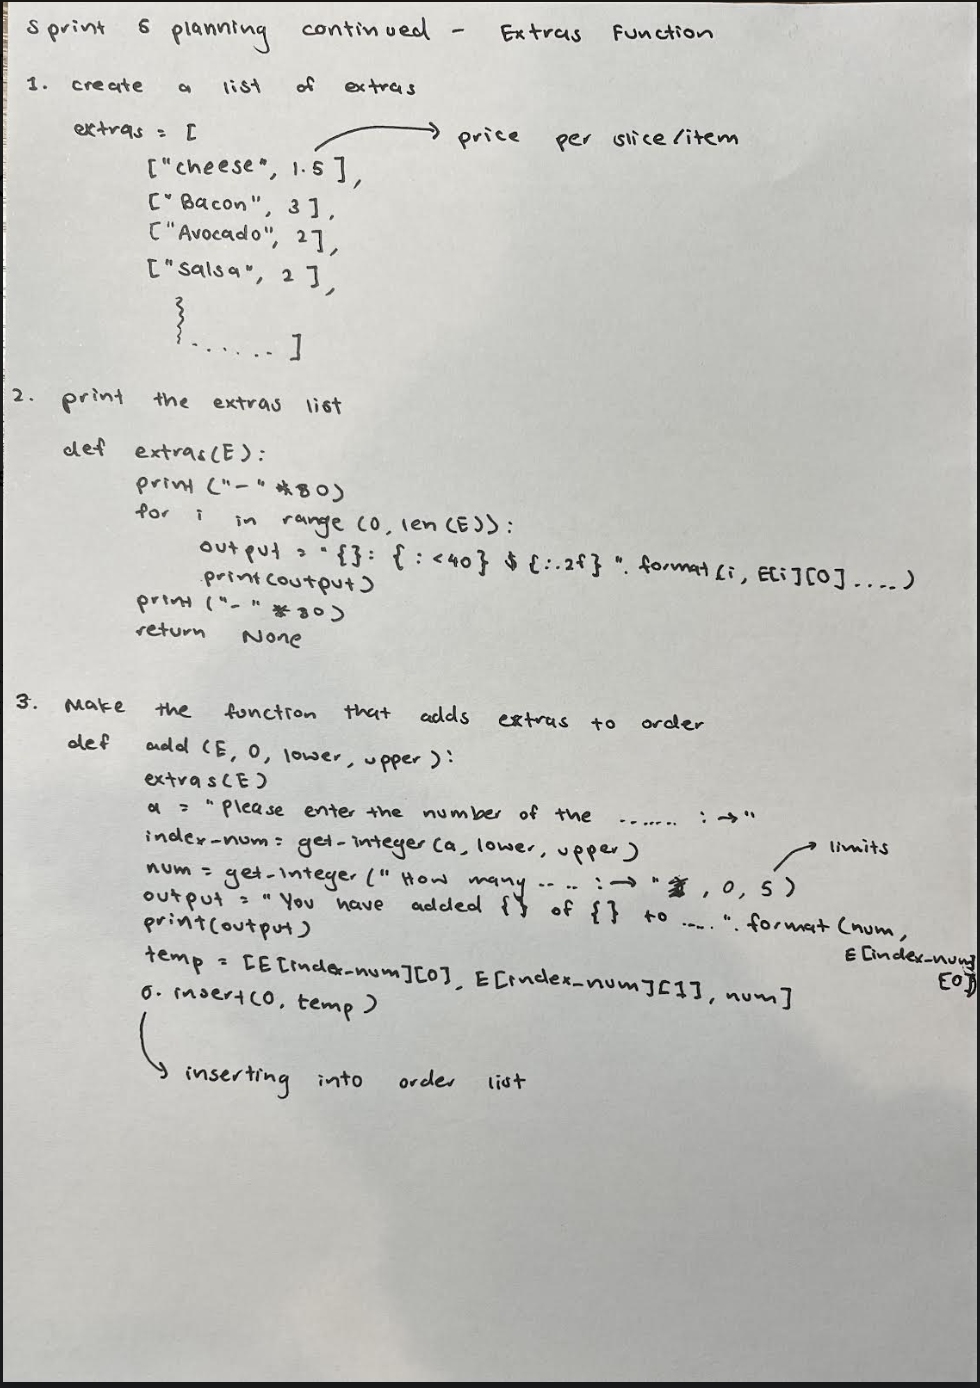 Sprint 5 planning continued - Extras Function
1. create a list of extras
extras = [
→ price per slice/item
["cheese", 1.5],
["Bacon", 3],
["Avocado", 2],
["Salsa", 2],
...... ]
2. print the extras list
def extras(E):
print ("-" *80)
for i in range (0, len (E)):
output = "{}: { : <40} $ {:.2f} ". format (i, E[i][0] ....)
print(output)
print ("-" *80)
return None
3. Make the function that adds extras to order
def add (E, O, lower, upper):
extras(E)
a = "Please enter the number of the ....... : →"
index-num = get-integer (a, lower, upper)
→ limits
num = get-integer (" How many .... : → ", 0, 5)
output = "You have added {} of {} to ....". format (num,
E[index-num]
[0])
print(output)
temp = [E[index-num][0], E[index-num][1], num]
O. insert(0, temp)
→ inserting into order list